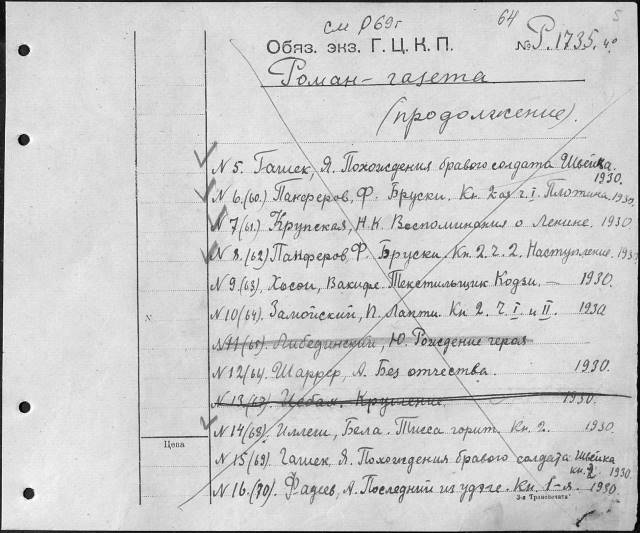 см Р69г
64
5
Обяз. экз. Г.Ц.К.П.
№ Р.1735. 4°
Роман-газета
(продолжение).
N 5. Гашек, Я. Похождения бравого солдата Швейка. 1930.
N 6.(60.) Панферов, Ф. Бруски. Кн. 2ая ч. I. Плотина. 1930.
N 7(61.) Крупская, Н.К. Воспоминания о Ленине. 1930
N 8.(62) Панферов, Ф. Бруски. Кн. 2. ч. 2. Наступление. 1930
N 9.(63). Хосои, Вакидзо. Текстильщик Кодзи. — 1930.
N 10(64). Замойский, П. Лапти. Кн 2. ч. I и II. 1930
N 11(65) Либединский, Ю. Рождение героя
N 12(64. Шаррер, А. Без отчества. 1930.
N 13(67). Кружение 1930.
N 14(68). Иллеш, Бела. Тисса горит. Кн. 2. 1930.
Цена
N 15(69). Гашек, Я. Похождения бравого солдата Швейка кн. 2 1930
N 16.(70). Фадеев, А. Последний из удэге. Кн. 1-я. 1930.
3-я Транспечати